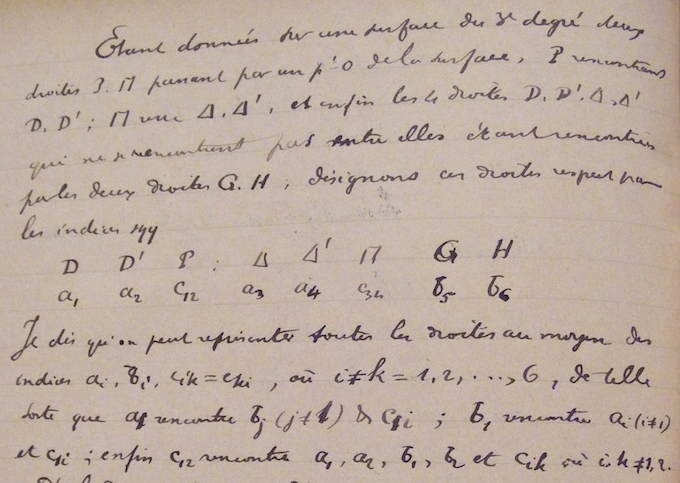 Étant données sur une surface du 3e degré deux
droites P. Π passant par un pt O de la surface, P rencontrant
D, D' ; Π une Δ, Δ', et enfin les 4 droites D, D', Δ, Δ'
qui ne se rencontrent pas entre elles étant rencontrées
par les deux droites G. H ; désignons ces droites respect par
les indices
D D' P ; Δ Δ' Π G H
a1 a2 c12 a3 a4 c34 b5 b6
Je dis qu'on peut représenter toutes les droites au moyen des
indices ai, bi, cik = cki, où i≠k = 1, 2, ..., 6, de telle
sorte que a1 rencontre bj (j≠1) & c1i ; b1 rencontre ai (i≠1)
et c1i ; enfin c12 rencontre a1, a2, b1, b2 et cik où i,k≠1,2.